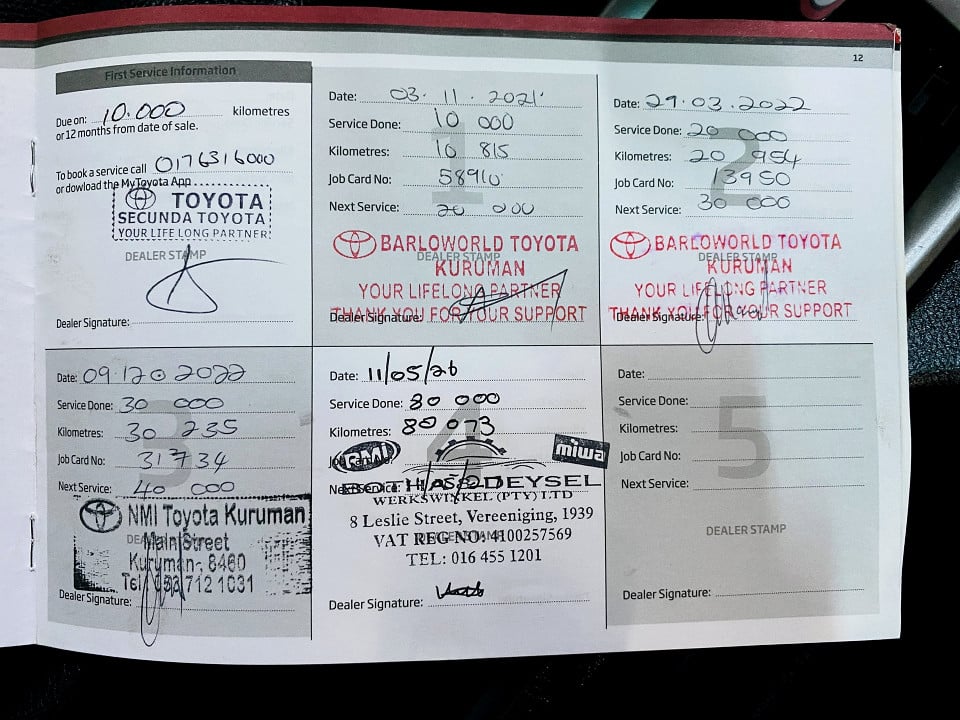 12
First Service Information
Due on: 10.000 kilometres
or 12 months from date of sale.
To book a service call 0176316000
or dowload the MyToyota App
TOYOTA
SECUNDA TOYOTA
YOUR LIFE LONG PARTNER
DEALER STAMP
Dealer Signature:
1
Date: 03.11.2021
Service Done: 10 000
Kilometres: 10 815
Job Card No: 58910
Next Service: 20 000
BARLOWORLD TOYOTA
DEALER STAMP
KURUMAN
YOUR LIFELONG PARTNER
THANK YOU FOR YOUR SUPPORT
Dealer Signature:
2
Date: 29.03.2022
Service Done: 20 000
Kilometres: 20 954
Job Card No: 13950
Next Service: 30 000
BARLOWORLD TOYOTA
DEALER STAMP
KURUMAN
YOUR LIFELONG PARTNER
THANK YOU FOR YOUR SUPPORT
Dealer Signature:
3
Date: 2022
Service Done: 30 000
Kilometres: 30 235
Job Card No: 31734
Next Service: 40 000
NMI Toyota Kuruman
Main Street
Kuruman, 8460
Tel 053 712 1031
Dealer Signature:
4
Date: 11/05/26
Service Done: 80 000
Kilometres: 80 073
Job Card No:
RMI
miwa
Next Service:
DEYSEL
WERKSWINKEL (PTY) LTD
8 Leslie Street, Vereeniging, 1939
VAT REG NO: 4100257569
TEL: 016 455 1201
Dealer Signature:
5
Date:
Service Done:
Kilometres:
Job Card No:
Next Service:
DEALER STAMP
Dealer Signature: